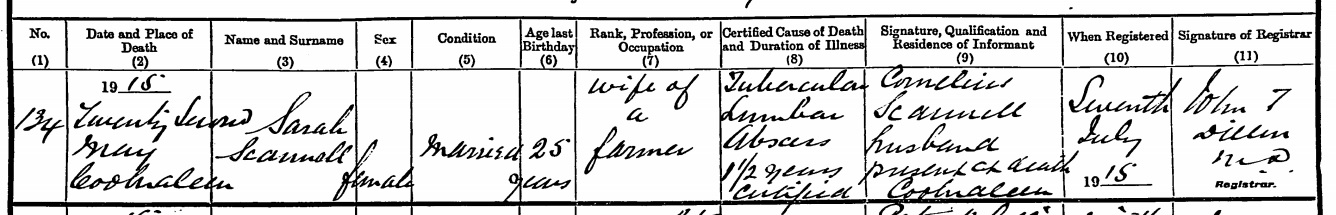 No.
(1)
Date and Place of
Death
(2)
Name and Surname
(3)
Sex
(4)
Condition
(5)
Age last
Birthday
(6)
Rank, Profession, or
Occupation
(7)
Certified Cause of Death
and Duration of Illness
(8)
Signature, Qualification and
Residence of Informant
(9)
When Registered
(10)
Signature of Registrar
(11)
134
1915
Twenty Second
May
Coolnaleen
Sarah
Scannell
female
Married
25
years
wife of
a
farmer
Tubercular
Lumbar
Abscess
1 1/2 years
Certified
Cornelius
Scannell
husband
present at death
Coolnaleen
Seventh
July
1915
John T
Dillon
M D
Registrar.